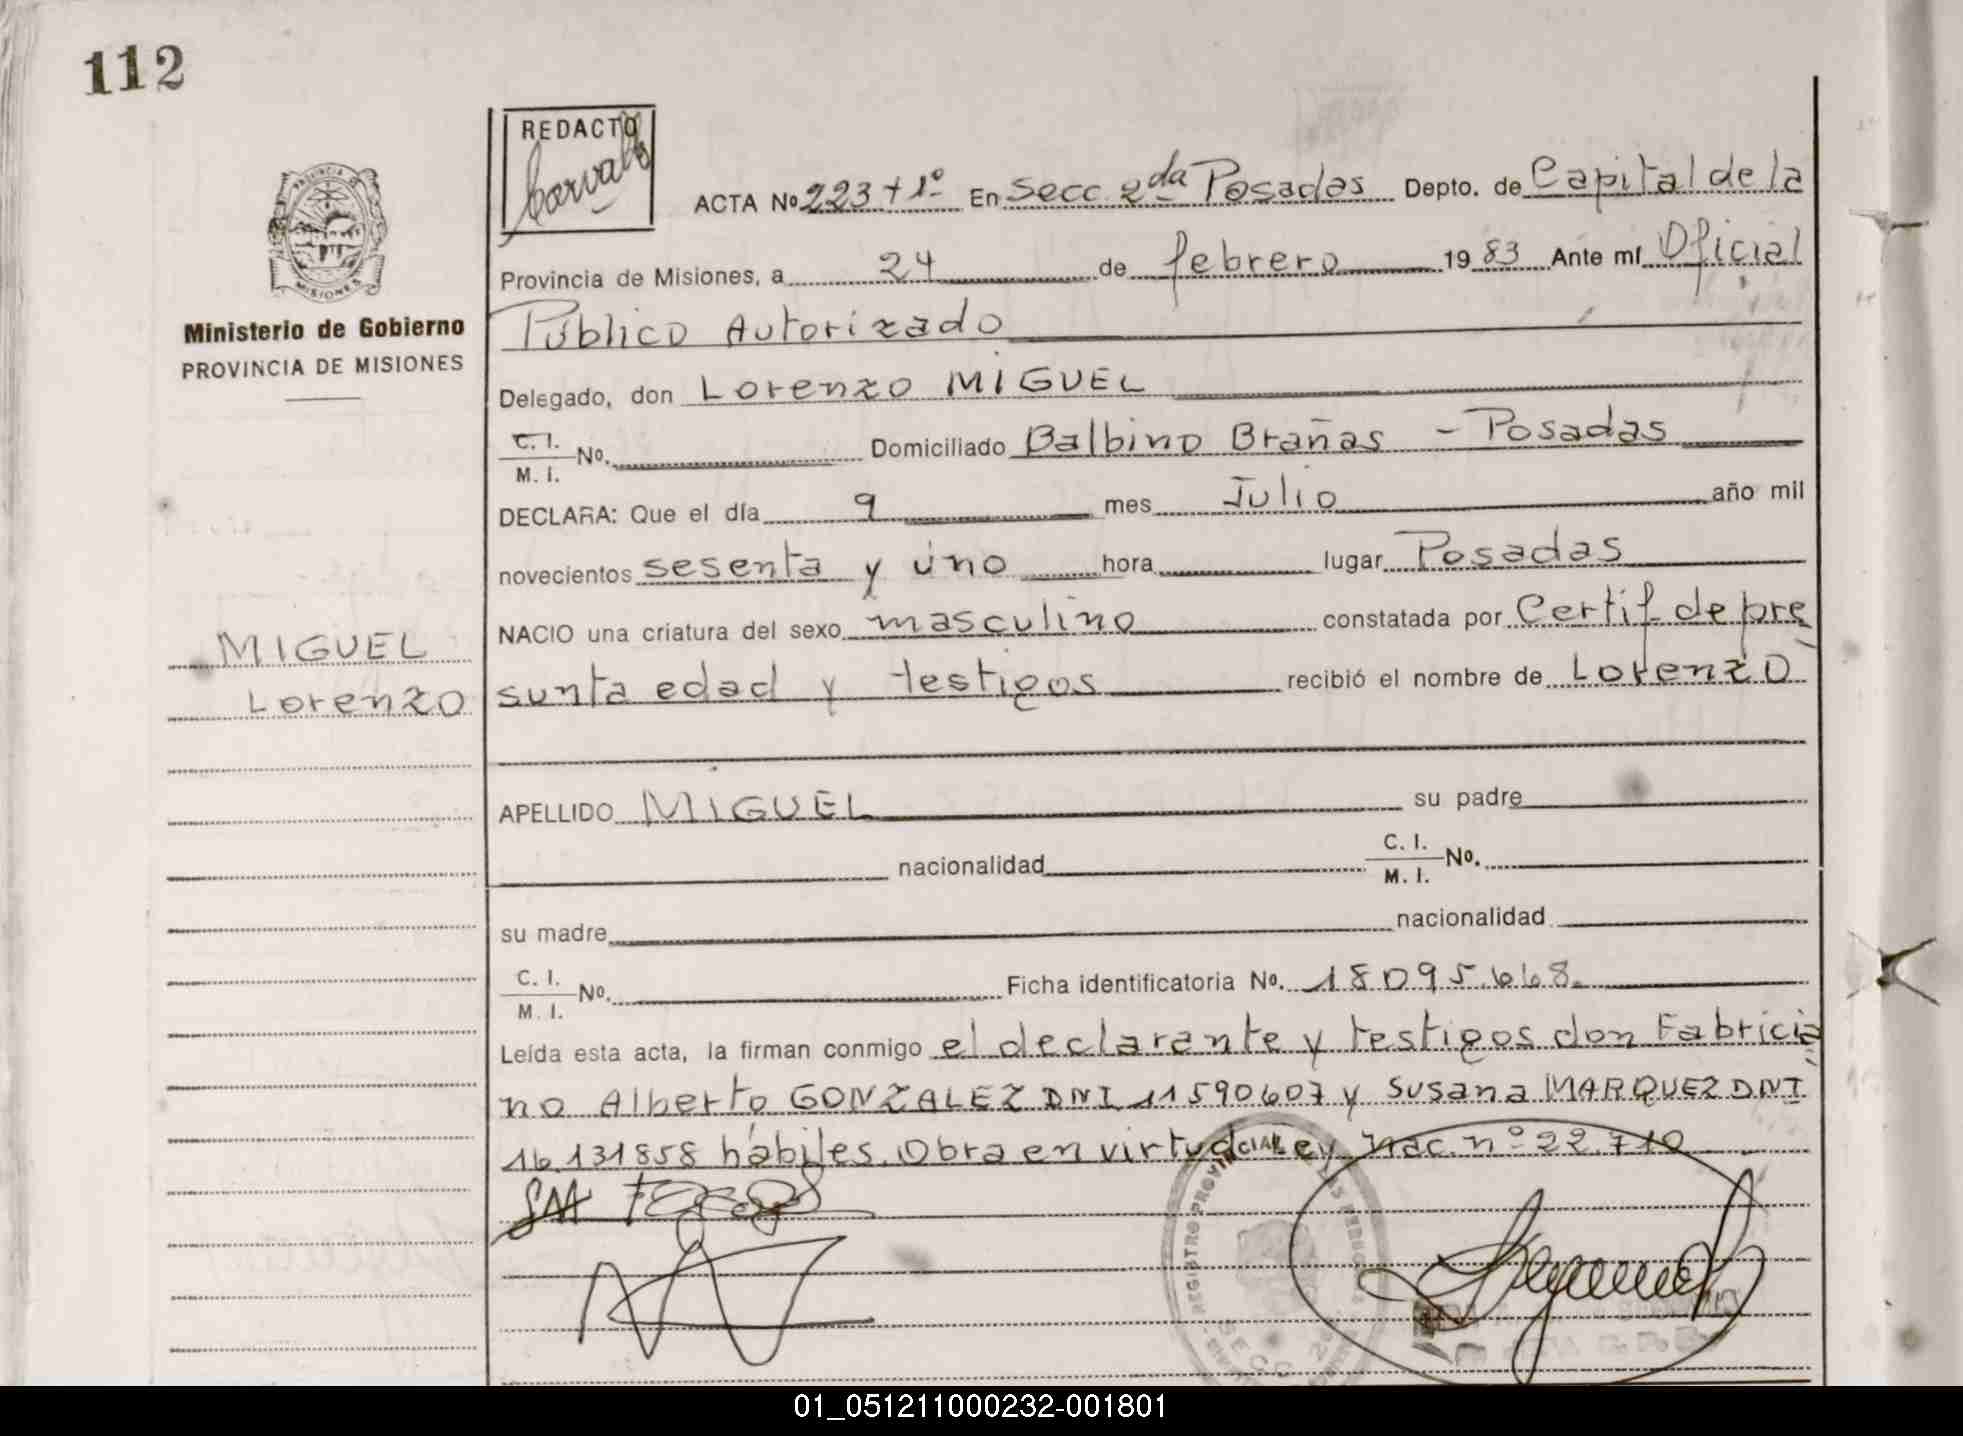 112
REDACTO
ACTA Nº 223 t 1º En Secc. 2da Posadas Depto. de Capital de la
PROVINCIA DE
MISIONES
Provincia de Misiones, a 24 de febrero 1983 Ante mí Oficial
Ministerio de Gobierno
PROVINCIA DE MISIONES
Público Autorizado
Delegado, don Lorenzo MIGUEL
C. I.
M. I. Nº. Domiciliado Balbino Brañas - Posadas
DECLARA: Que el día 9 mes Julio año mil
novecientos sesenta y uno hora lugar Posadas
NACIO una criatura del sexo masculino constatada por Certif. de pre
MIGUEL
Lorenzo
sunta edad y testigos recibió el nombre de Lorenzo
APELLIDO MIGUEL su padre
nacionalidad C. I.
M. I. Nº.
su madre nacionalidad
C. I.
M. I. Nº. Ficha identificatoria Nº. 18095.668.
Leída esta acta, la firman conmigo el declarante y testigos don Fabricia
no Alberto GONZALEZ DNI 11590607 y Susana MARQUEZ DNI
16.131858 hábiles. Obra en virtud Ley Nac. nº 22.710
REGISTRO PROVINCIAL
SECC. 2da
01_051211000232-001801